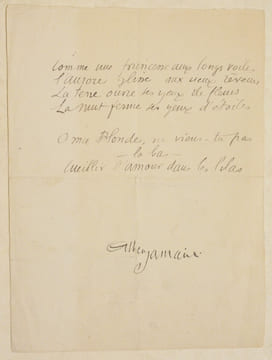 Comme une fiancée aux longs voiles
L'aurore glisse aux yeux rêveurs
La terre ouvre ses yeux de fleurs
La nuit ferme ses yeux d'étoiles
O ma Blonde, ne viens-tu pas
là bas
Cueillir l'amour dans les lilas